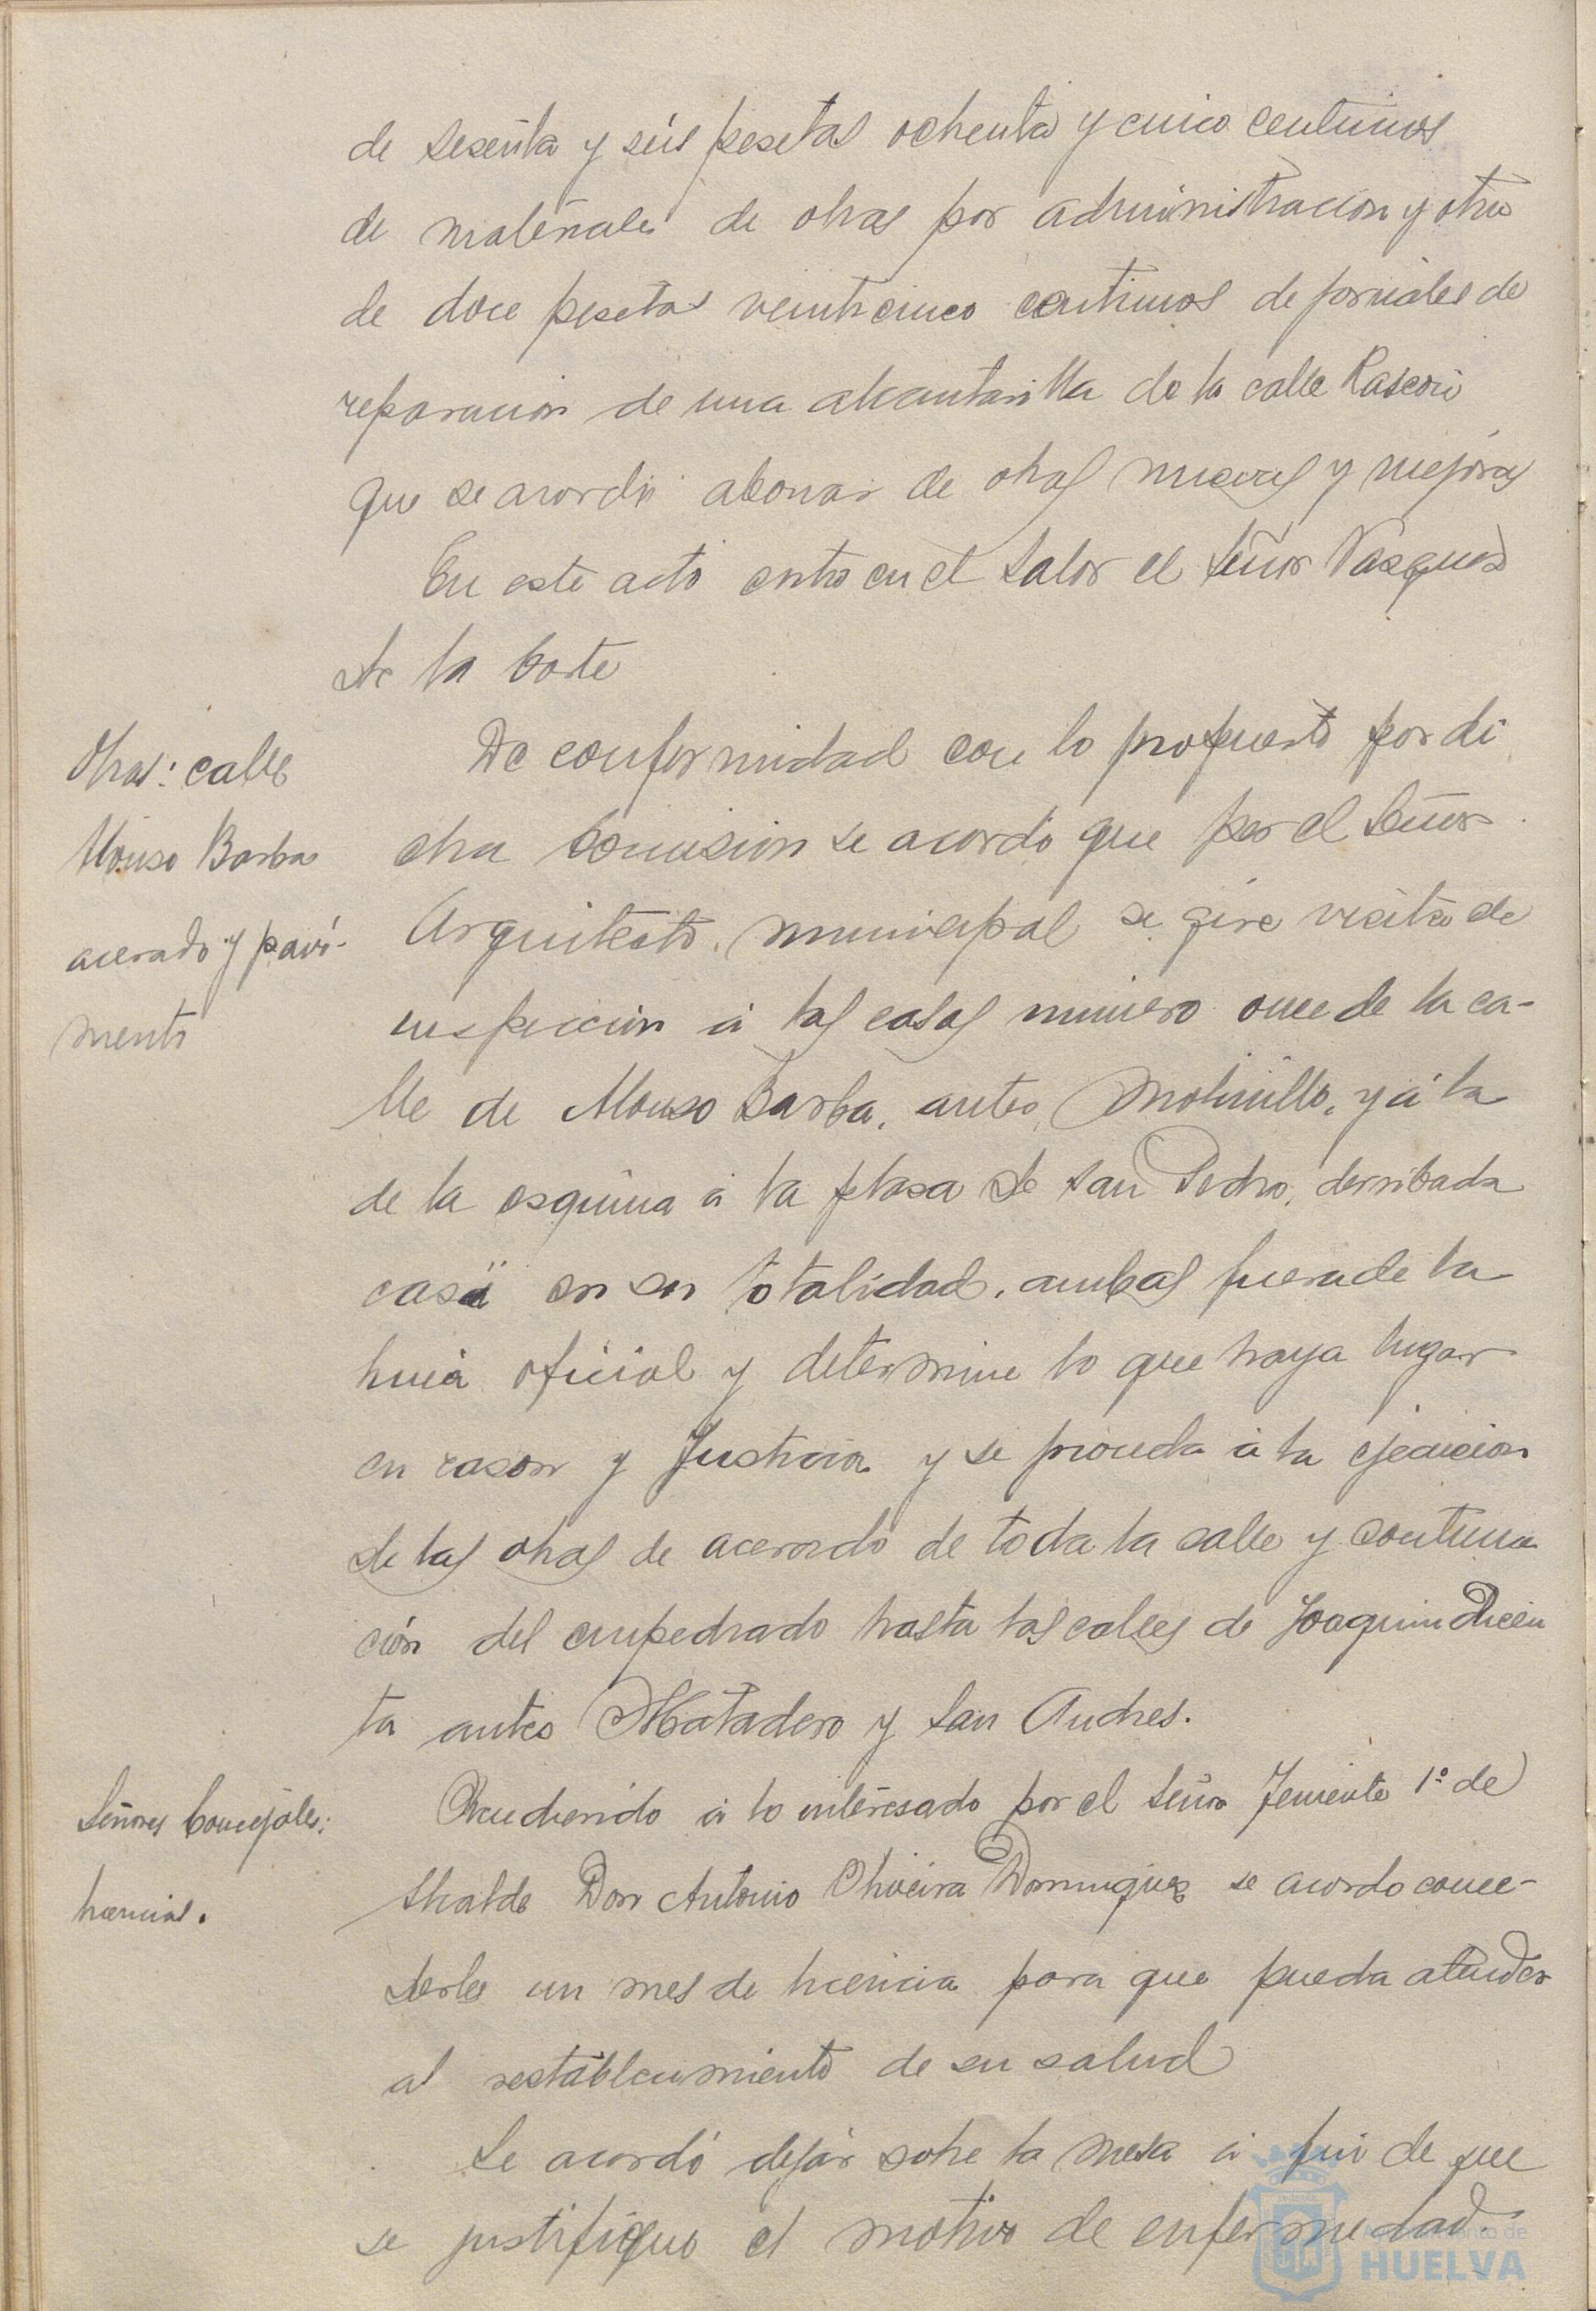 de sesenta y seis pesetas ochenta y cinco centimos
de materiales de obras por administracion y otra
de doce pesetas veinticinco centimos de jornales de
reparacion de una alcantarilla de la calle Rascon
que se acordó abonar de obras nuevas y mejoras
En este acto entro en el Salon el Señor Vazquez
de la Corte
Obras: calle
Alonso Barba
acerado y pavi-
mento
De conformidad con lo propuesto por di
cha Comision se acordó que por el Señor
Arquitecto municipal se gire visita de
inspeccion á las casas numero once de la ca-
lle de Alonso Barba, antes, Molinillo, y á la
de la esquina á la plaza de San Pedro, derribada
casi en su totalidad, ambas fuera de la
linea oficial y determine lo que haya lugar
en razon y Justicia y se proceda á la ejecucion
de las obras de acerado de toda la calle y continua
ción del empedrado hasta las calles de Joaquin Dicen
ta antes Matadero y San Andres.
Señores Concejales:
licencias.
Accediendo á lo interesado por el Señor Teniente 1º de
Alcalde Don Antonio Oliveira Dominguez se acordo conce-
derle un mes de licencia para que pueda atender
al restablecimiento de su salud
Se acordó dejar sobre la mesa á fin de que
se justifique el motivo de enfermedad
Ayuntamiento de
HUELVA